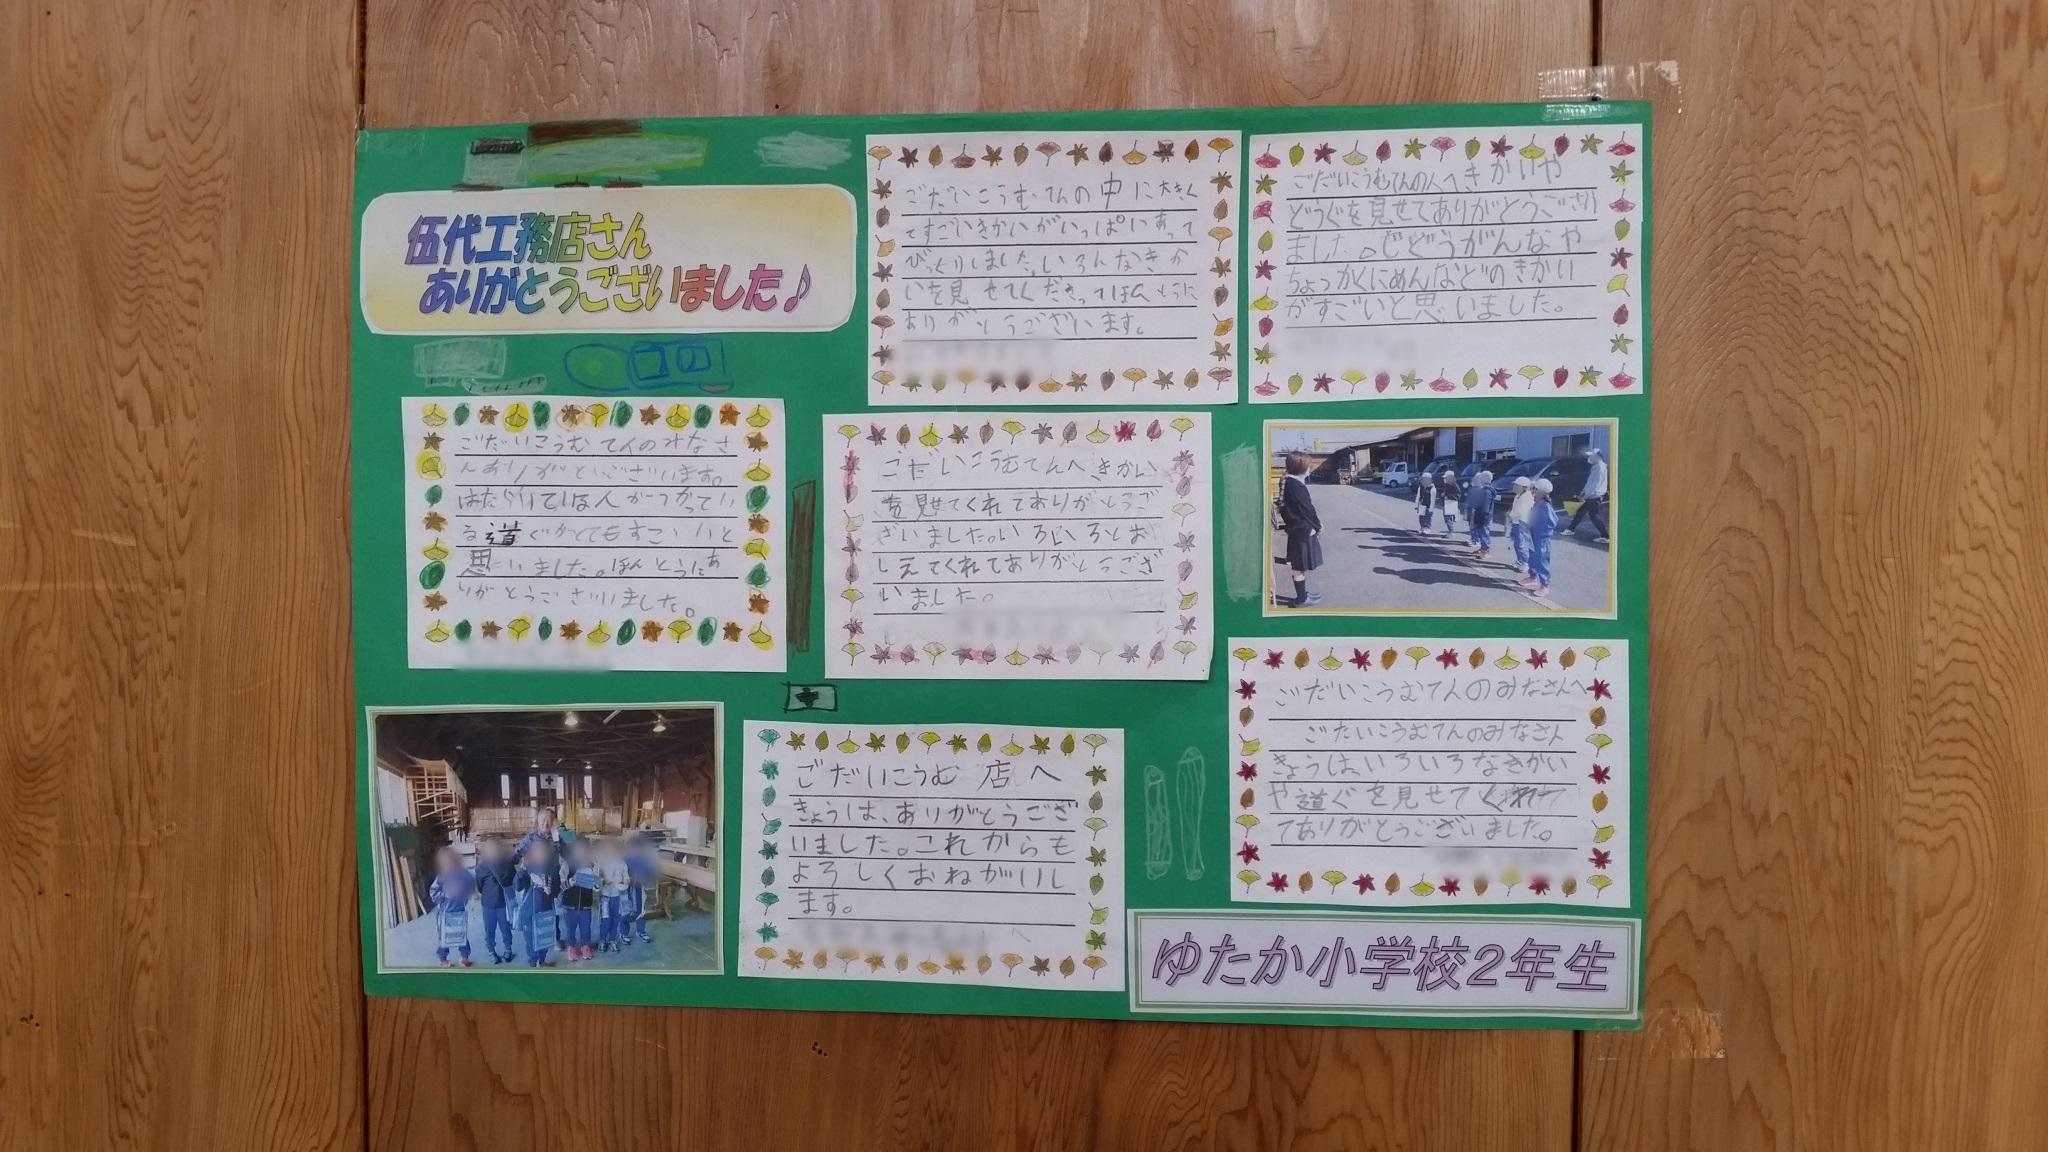 伍代工務店さん
ありがとうございました♪
ごだいこうむてんの中に大きく
てすごいきかいがいっぱいあって
びっくりしました。いろんなきか
いを見せてくださってほんとうに
ありがとうございます。
ごだいこうむてんの人へきかいや
どうぐを見せてありがとうござい
ました。じどうがんなや
ちょっかくにめんなどのきかい
がすごいと思いました。
ごだいこうむてんのみなさ
んありがとうございます。
はたらいている人がつかってい
る道ぐがとてもすごいと
思いました。ほんとうにあ
りがとうございました。
ごだいこうむてんへきかい
を見せてくれてありがとうご
ざいました。いろいろとお
しえてくれてありがとうござ
いました。
ごだいこうむてんのみなさんへ
ごだいこうむてんのみなさん
きょうは、いろいろなきかい
や道ぐを見せてくれて
てありがとうございました。
ごだいこうむ店へ
きょうは、ありがとうござ
いました。これからも
よろしくおねがいし
ます。
ゆたか小学校2年生